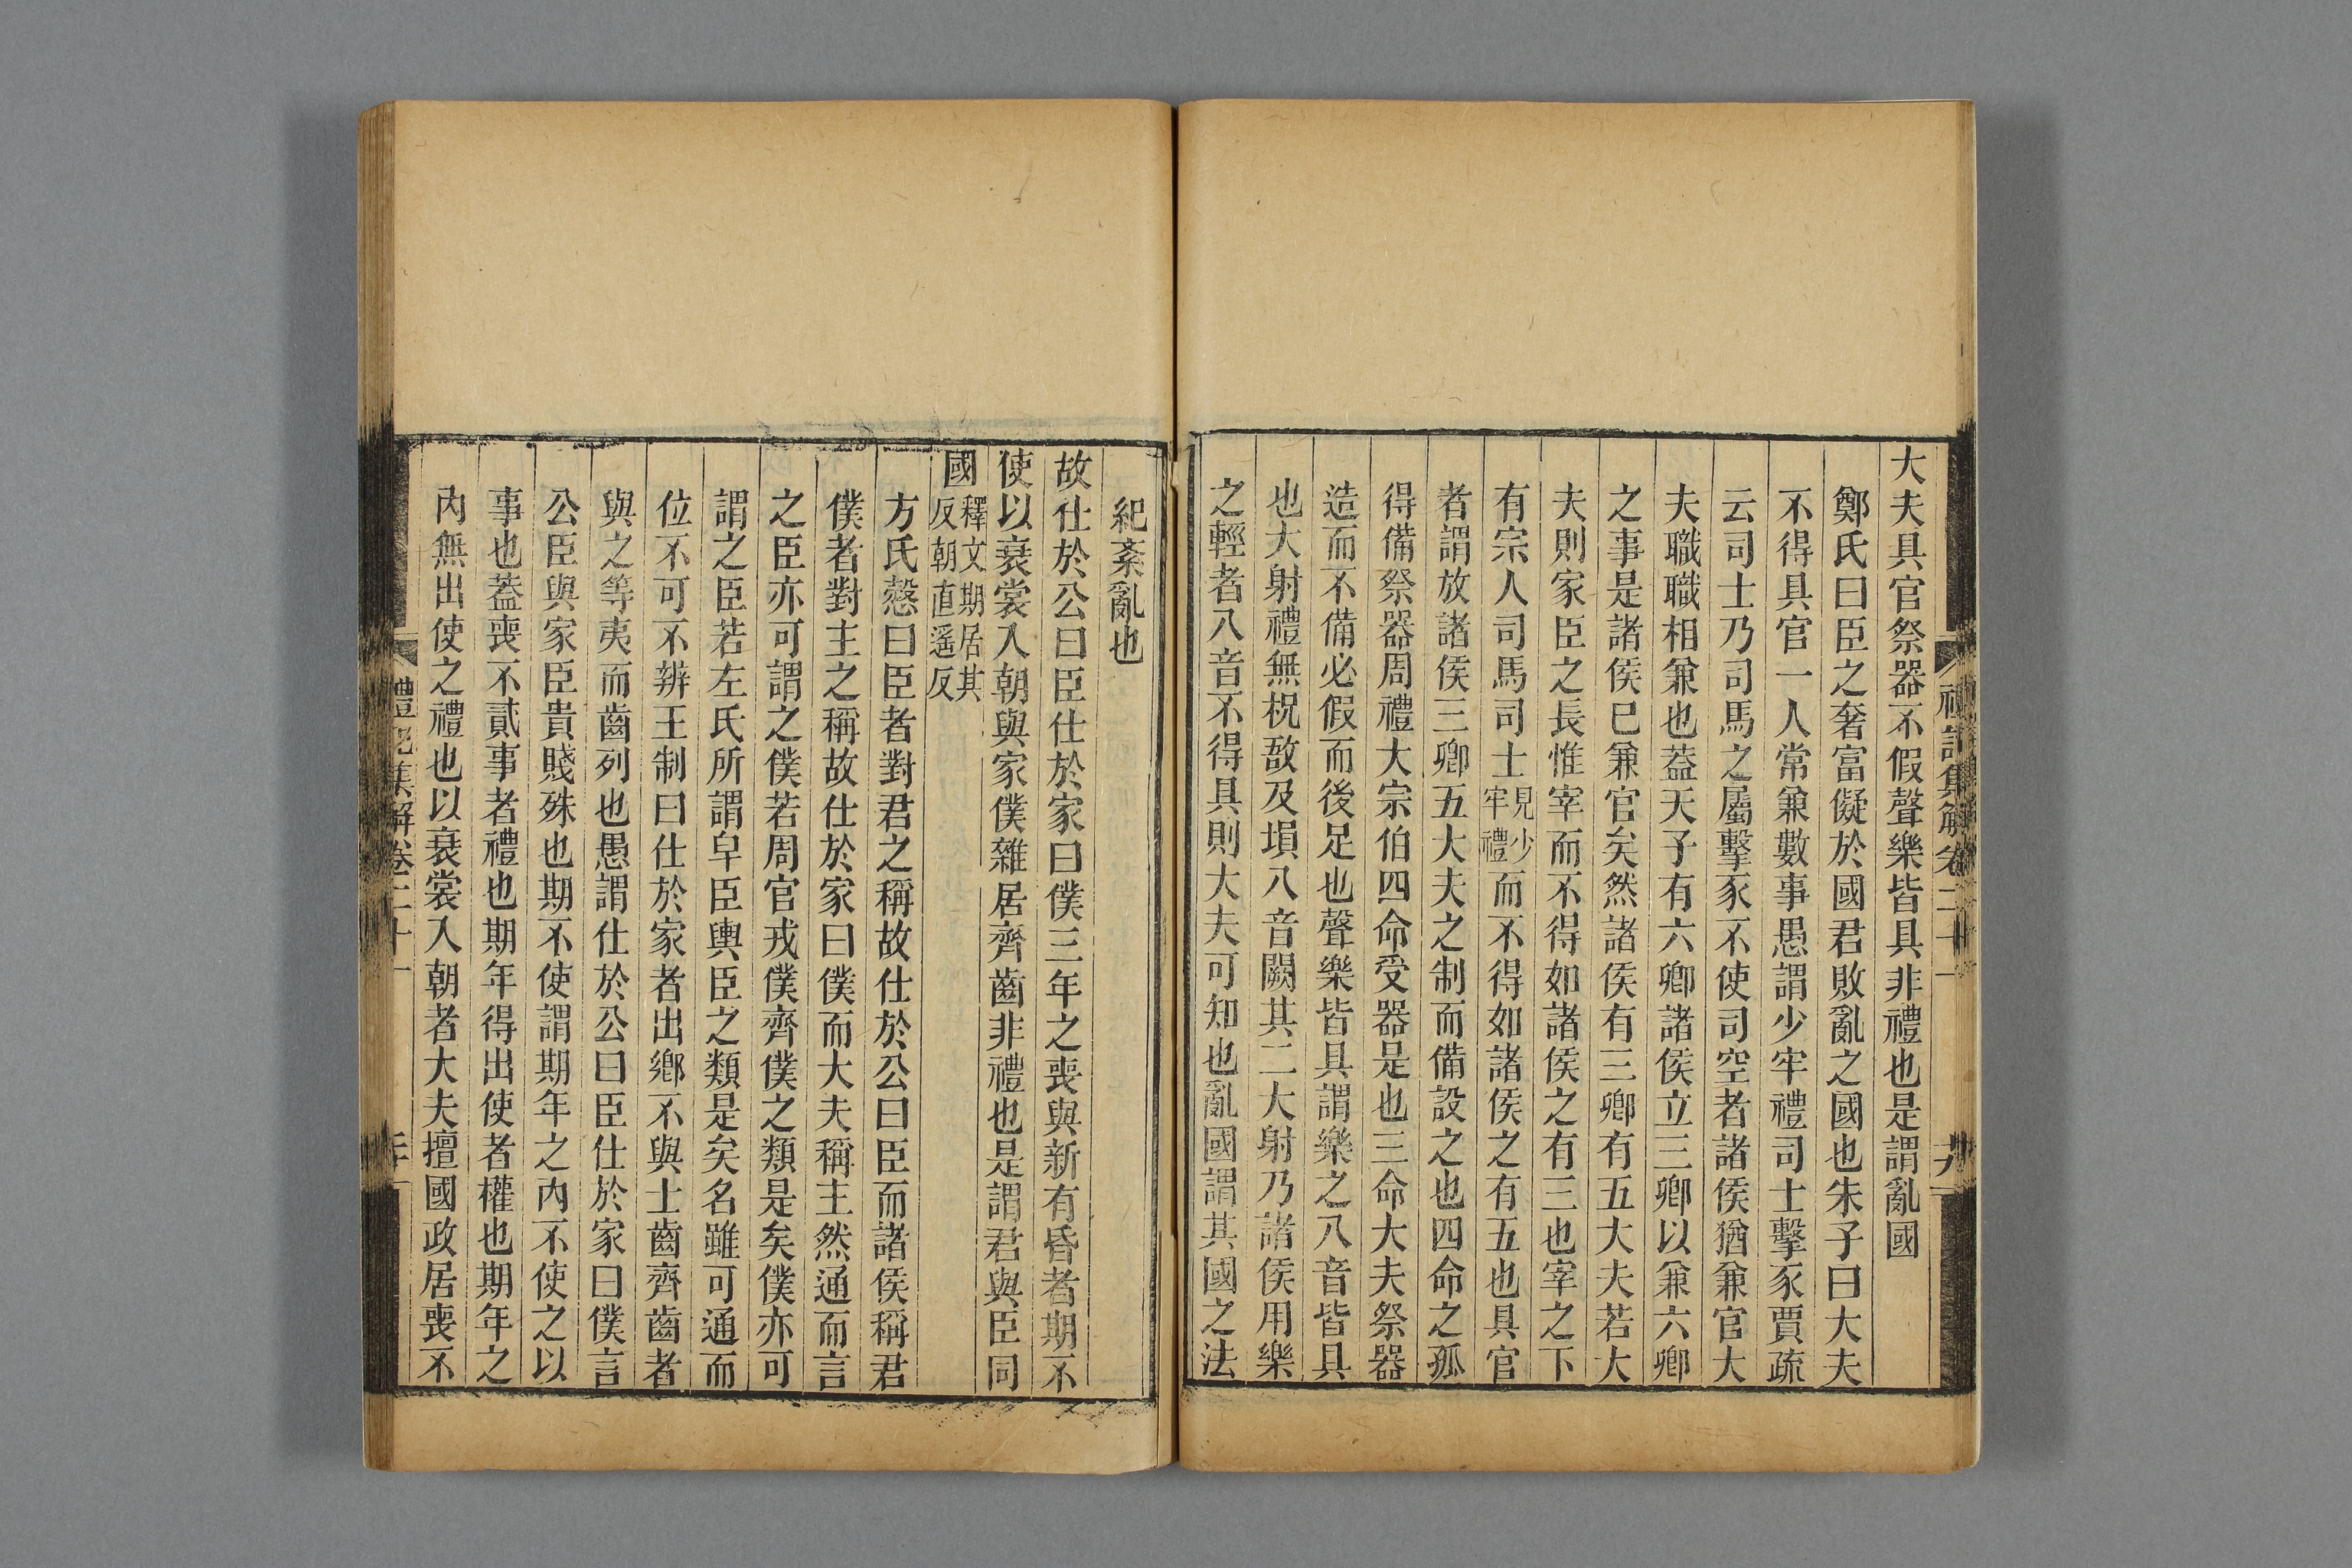 禮記集解卷二十一
九
大夫具官祭器不假聲樂皆具非禮也是謂亂國
鄭氏曰臣之奢富儗於國君敗亂之國也朱子曰大夫
不得具官一人常兼數事愚謂少牢禮司士擊豕賈疏
云司士乃司馬之屬擊豕不使司空者諸侯猶兼官大
夫職職相兼也蓋天子有六卿諸侯立三卿以兼六卿
之事是諸侯巳兼官矣然諸侯有三卿有五大夫若大
夫則家臣之長惟宰而不得如諸侯之有三也宰之下
有宗人司馬司士見少牢禮而不得如諸侯之有五也具官
者謂放諸侯三卿五大夫之制而備設之也四命之孤
得備祭器周禮大宗伯四命受器是也三命大夫祭器
造而不備必假而後足也聲樂皆具謂樂之八音皆具
也大射禮無柷敔及塤八音闕其二大射乃諸侯用樂
之輕者八音不得具則大夫可知也亂國謂其國之法
紀紊亂也
故仕於公曰臣仕於家曰僕三年之喪與新有昏者期不
使以衰裳入朝與家僕雜居齊齒非禮也是謂君與臣同
國釋文期居其反朝直遙反
方氏慤曰臣者對君之稱故仕於公曰臣而諸侯稱君
僕者對主之稱故仕於家曰僕而大夫稱主然通而言
之臣亦可謂之僕若周官戎僕齊僕之類是矣僕亦可
謂之臣若左氏所謂皁臣輿臣之類是矣名雖可通而
位不可不辨王制曰仕於家者出鄉不與士齒齊齒者
與之等夷而齒列也愚謂仕於公曰臣仕於家曰僕言
公臣與家臣貴賤殊也期不使謂期年之內不使之以
事也蓋喪不貳事者禮也期年得出使者權也期年之
內無出使之禮也以衰裳入朝者大夫擅國政居喪不
禮記集解卷二十一